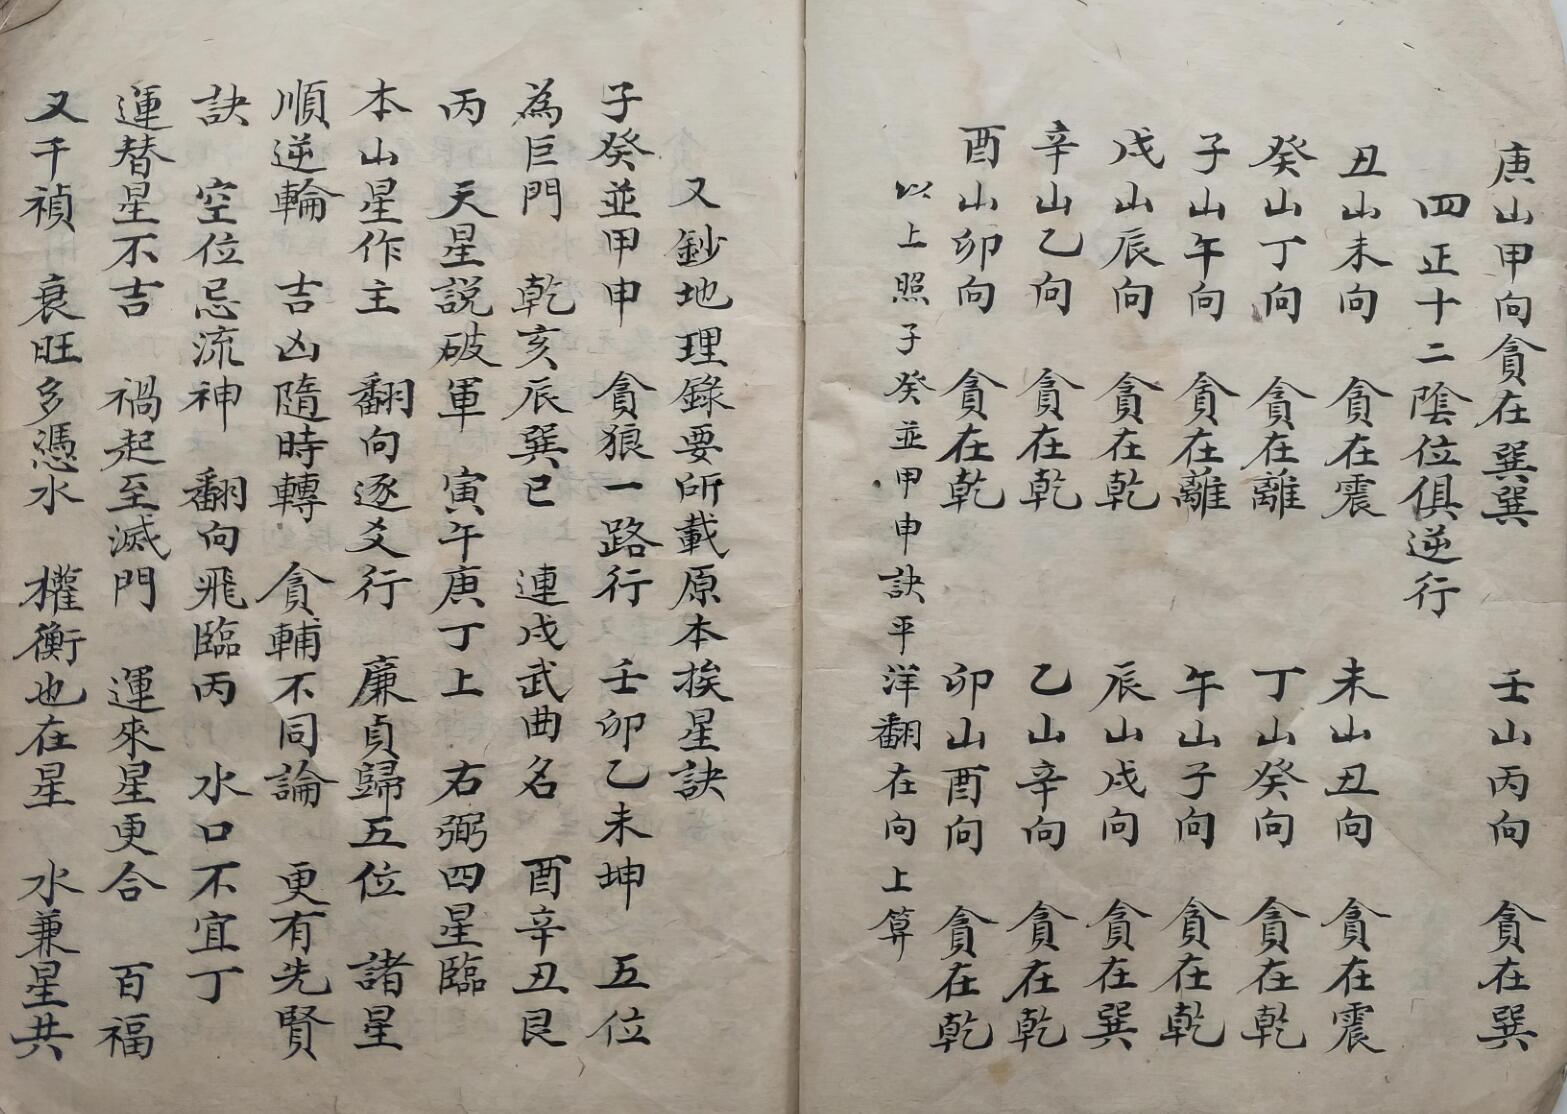 庚山甲向貪在巽巽 壬山丙向 貪在巽
四正十二陰位俱逆行
丑山未向 貪在震 未山丑向 貪在震
癸山丁向 貪在離 丁山癸向 貪在乾
子山午向 貪在離 午山子向 貪在乾
戌山辰向 貪在乾 辰山戌向 貪在巽
辛山乙向 貪在乾 乙山辛向 貪在乾
酉山卯向 貪在乾 卯山酉向 貪在乾
以上照子癸並甲申訣平洋翻在向上算
又鈔地理錄要所載原本挨星訣
子癸並甲申 貪狼一路行 壬卯乙未坤 五位
為巨門 乾亥辰巽巳 連戌武曲名 酉辛丑艮
丙 天星説破軍 寅午庚丁上 右弼四星臨
本山星作主 翻向逐爻行 廉貞歸五位 諸星
順逆輪 吉凶隨時轉 貪輔不同論 更有先賢
訣 空位忌流神 翻向飛臨丙 水口不宜丁
運替星不吉 禍起至滅門 運來星更合 百福
又千禎 衰旺多憑水 權衡也在星 水兼星共